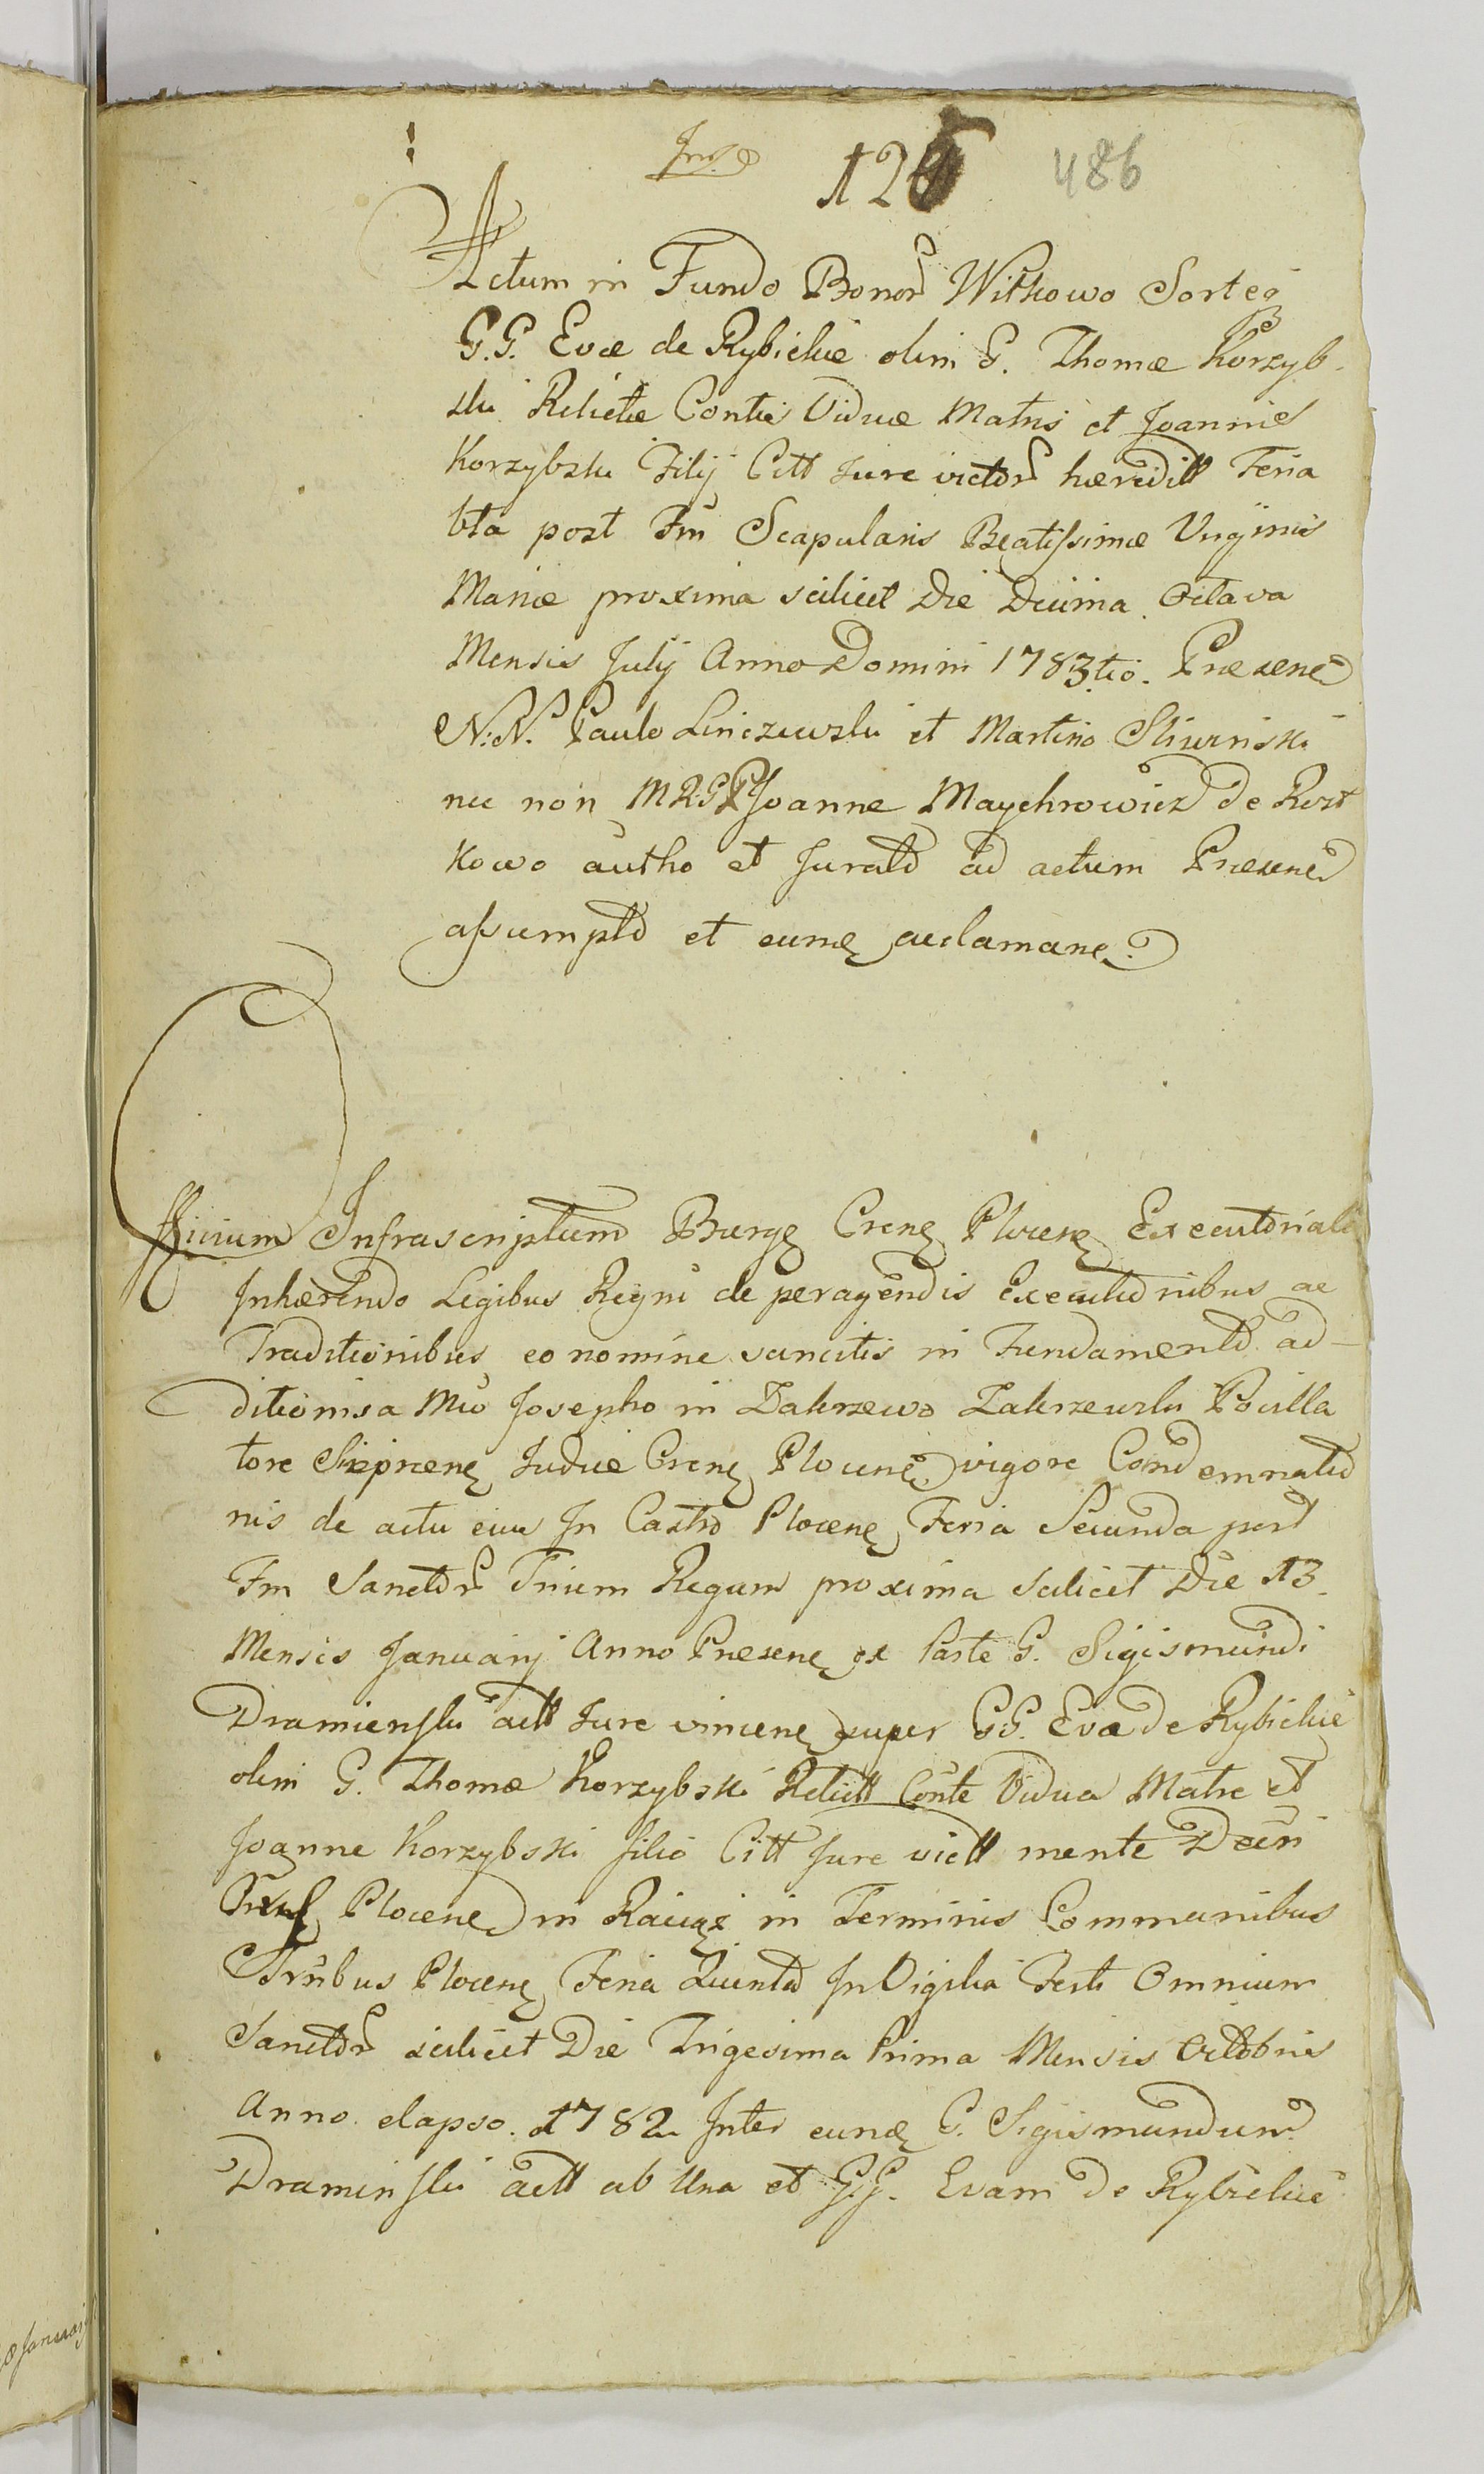 126 486
Actum in Fundo Bonor Witkowo Sorte
G.G. Evæ de Rybickie olim G. Thomæ Korzyb-
ski Relictæ Contis Viduæ Matris et Joannis
Korzybski Filij Citt Jure victor hæreditt Feria
6ta post Fm Scapularis Beatissimæ Virginis
Mariæ proxima scilicet Die Decima Octava
Mensis Julij Anno Domini 1783tio. Præsene
N:N. Paulo Liniczewski et Martino Sliwinski
nec non Joanne Maychrowicz de Rost
kowo autho et Jurato ad actum Præsene
assumpto et eunq acclamane.
Officium Infrascriptum Burg Crene Plocene Executoriale
Inhærendo Legibus Regni de peragendis Executionibus ac
Traditionibus eo nomine sancitis in Fundamento ad-
ditionis a Mco Josepho in Zakrzewo Zakrzewski Pocilla
tore Sieprcene Judice Crene Plocene vigore Condemnatio
nis de actu eius In Castro Plocene Feria Secunda post
Fm Sanctor Trium Regum proxima scilicet Die 13
Mensis Januarij Anno Præsene ex Parte G. Sigismundi
Dramienski actt Jure vincene super GG. Eva de Rybickie
olim G. Thomæ Korzybski Relictt Conte Vidua Matre et
Joanne Korzybski filio Citt Jure victt mente Decri
Plocene in Raciąż in Terminis Communibus
Tribus Plocene Feria Quinta In Vigilia Festi Omnium
Sanctor scilicet Die Trigesima Prima Mensis Octobris
Anno elapso. 1782 Inter eunq G. Sigismundum
Draminski actt ab Una et G.G. Evam de Rybickie